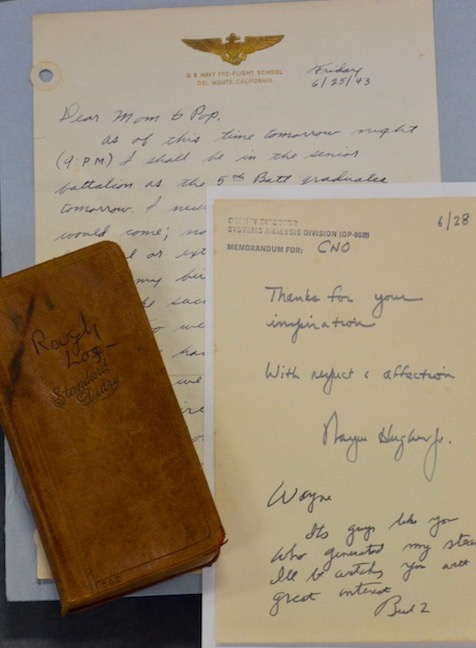 U.S. NAVY PRE-FLIGHT SCHOOL
DEL MONTE, CALIFORNIA
Friday
6/25/43
Dear Mom & Pop,
As of this time tomorrow night
(9 P.M.) I shall be in the senior
battalion as the 5th Batt graduates
tomorrow. I
would come; no
or
my
we
Rough
Log
Standard
Diary
6/28
SYSTEMS ANALYSIS DIVISION (OP-96B)
MEMORANDUM FOR: CNO
Thanks for your
inspiration
With respect & affection
Wayne Hughes Jr.
Wayne
Its guys like you
who generated my
I'll be watching you with
great interest
Bud Z